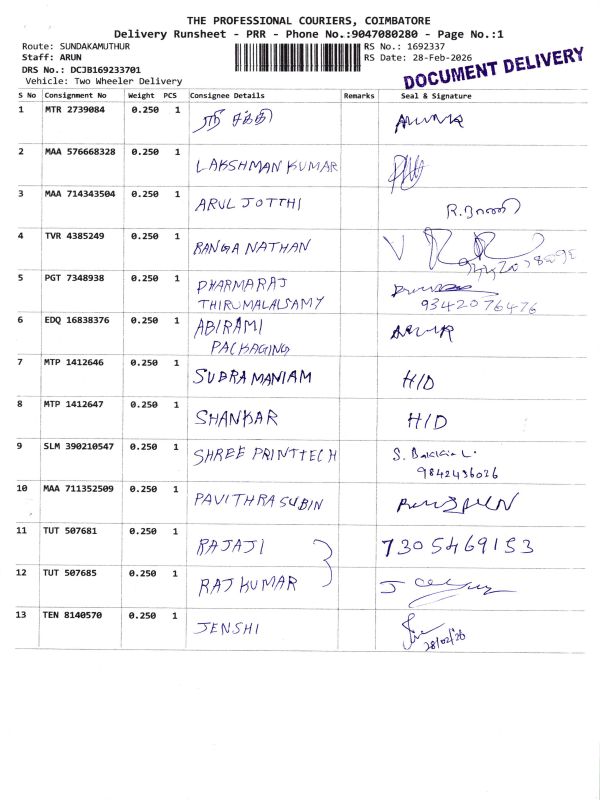 THE PROFESSIONAL COURIERS, COIMBATORE
Delivery Runsheet - PRR - Phone No.:9047080280 - Page No.:1
Route: SUNDAKAMUTHUR RS No.: 1692337
Staff: ARUN RS Date: 28-Feb-2026
DRS No.: DCJB169233701
Vehicle: Two Wheeler Delivery
DOCUMENT DELIVERY
S No Consignment No Weight PCS Consignee Details Remarks Seal & Signature
1 MTR 2739084 0.250 1 ஸ்ரீ சக்தி
2 MAA 576668328 0.250 1 LAKSHMAN KUMAR
3 MAA 714343504 0.250 1 ARUL JOTTHI R.
4 TVR 4385249 0.250 1 RANGA NATHAN
5 PGT 7348938 0.250 1 DHARMARAJ
THIRUMALAISAMY 9342076476
6 EDQ 16838376 0.250 1 ABIRAMI
PACKAGING
7 MTP 1412646 0.250 1 SUBRAMANIAM H/D
8 MTP 1412647 0.250 1 SHANKAR H/D
9 SLM 390210547 0.250 1 SHREE PRINTTECH S.
9842436036
10 MAA 711352509 0.250 1 PAVITHRASUBIN
11 TUT 507681 0.250 1 RAJAJI 7305469153
12 TUT 507685 0.250 1 RAJKUMAR J
13 TEN 8140570 0.250 1 JENSHI
28/02/26